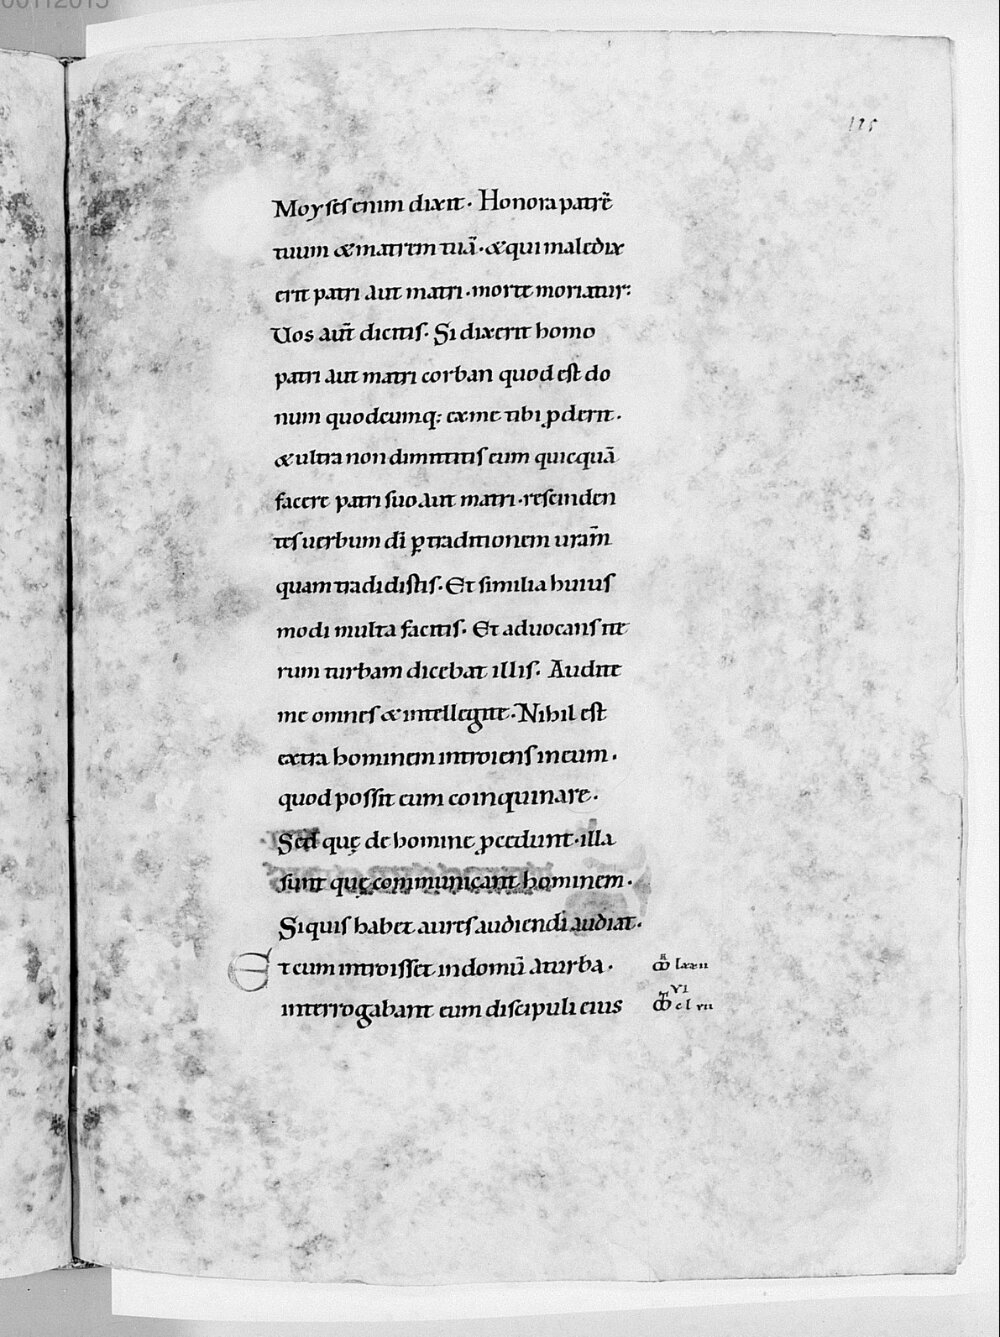 125
Moyses enim dixit. Honora patrē
tuum & matrem tuā. & qui maledix
erit patri aut matri. morte moriatur:
Uos aut̄ dicitis. Si dixerit homo
patri aut matri corban quod est do
num quodcumq: ex me tibi ꝓderit.
& ultra non dimittitis eum quicquā
facere patri suo aut matri. rescinden
tes uerbum dī ꝑ traditionem uram̄
quam tradidistis. Et similia huius
modi multa facitis. Et aduocans ite
rum turbam dicebat illis. Audite
me omnes & intellegite. Nihil est
extra hominem introiens in eum.
quod possit eum coinquinare.
Sed quę de homine ꝓcedunt. illa
sunt quę communicant hominem.
Si quis habet aures audiendi audiat.
Et cum introisset in domū a turba.
interrogabant eum discipuli eius